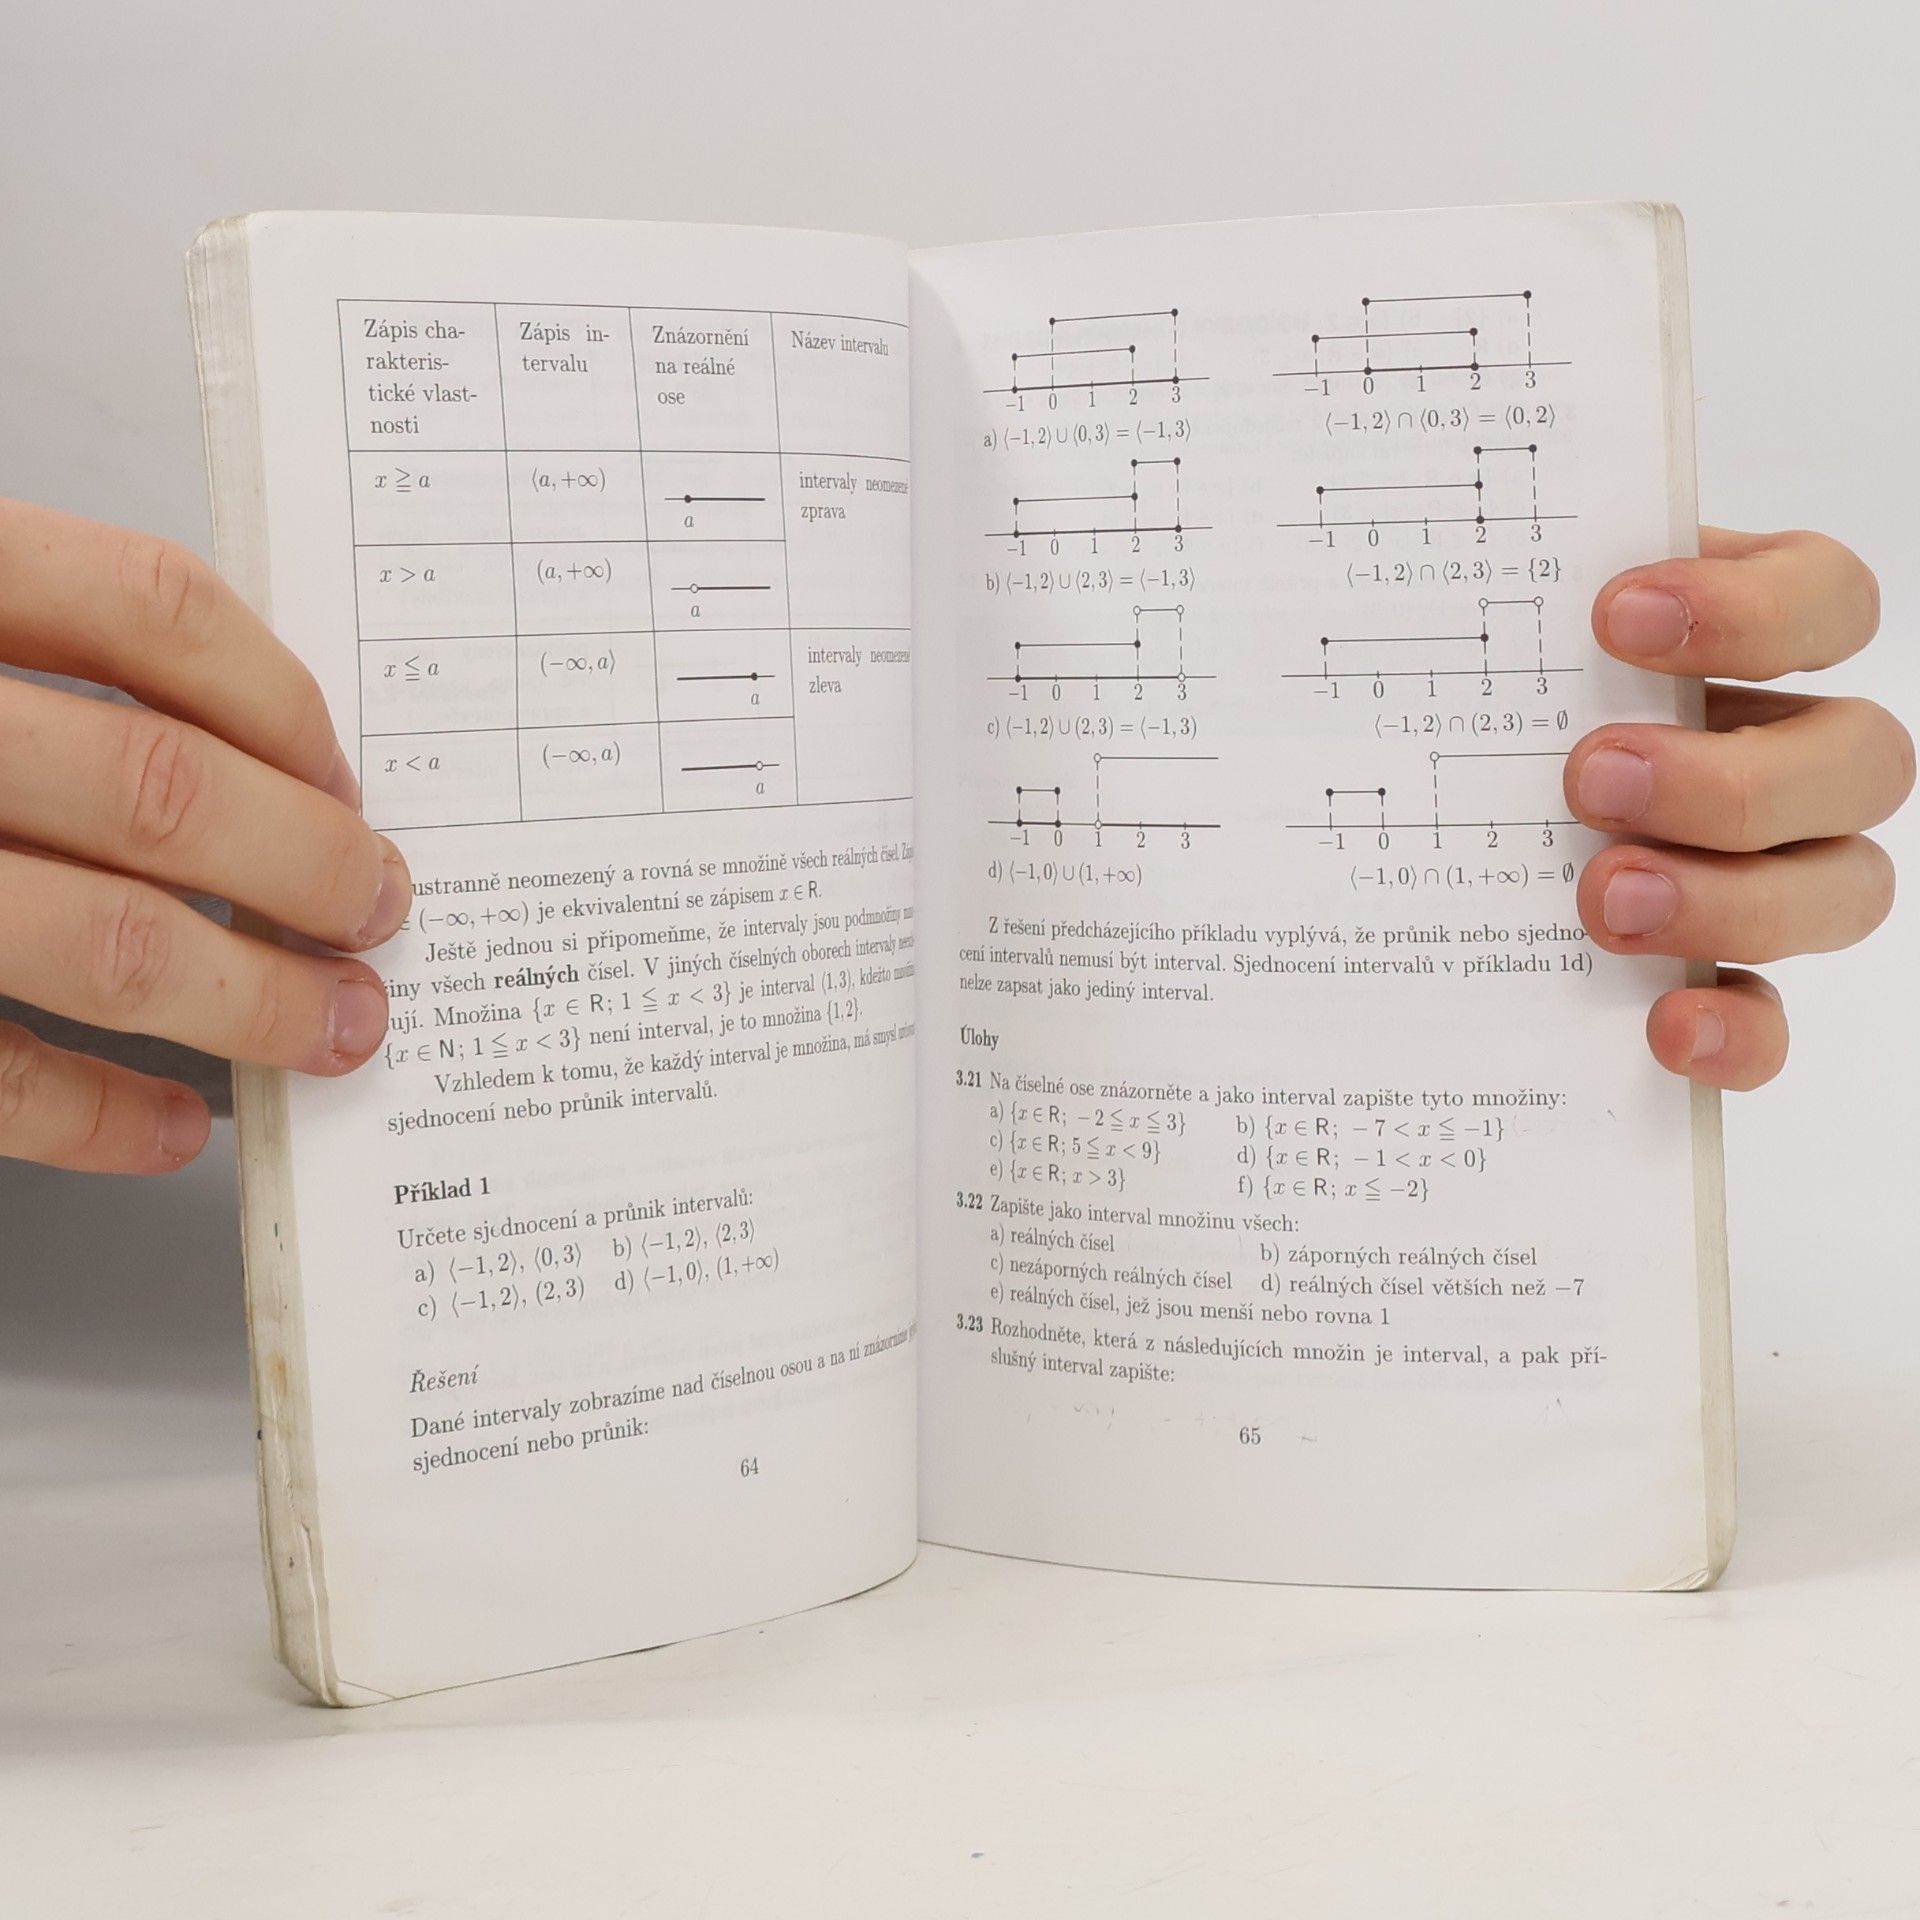 Zápis cha-
rakteris-
tické vlast-
nosti
Zápis in-
tervalu
Znázornění
na reálné
ose
Název intervalu
x ≧ a
⟨a, +∞)
a
intervaly neomezené
zprava
x > a
(a, +∞)
a
x ≦ a
(−∞, a⟩
a
intervaly neomezené
zleva
x < a
(−∞, a)
a
ustranně neomezený a rovná se množině všech reálných čísel.
∈ (−∞, +∞) je ekvivalentní se zápisem x ∈ R.
Ještě jednou si připomeňme, že intervaly jsou podmnožiny
iny všech reálných čísel. V jiných číselných oborech intervaly
ují. Množina {x ∈ R; 1 ≦ x < 3} je interval ⟨1, 3), kdežto
{x ∈ N; 1 ≦ x < 3} není interval, je to množina {1, 2}.
Vzhledem k tomu, že každý interval je množina, má smysl
sjednocení nebo průnik intervalů.
Příklad 1
Určete sjednocení a průnik intervalů:
a) ⟨−1, 2⟩, ⟨0, 3⟩ b) ⟨−1, 2⟩, ⟨2, 3⟩
c) ⟨−1, 2⟩, (2, 3) d) ⟨−1, 0⟩, (1, +∞)
Řešení
Dané intervaly zobrazíme nad číselnou osou a na ní znázorníme
sjednocení nebo průnik:
64
−1 0 1 2 3
−1 0 1 2 3
a) ⟨−1, 2⟩ ∪ ⟨0, 3⟩ = ⟨−1, 3⟩
⟨−1, 2⟩ ∩ ⟨0, 3⟩ = ⟨0, 2⟩
−1 0 1 2 3
−1 0 1 2 3
b) ⟨−1, 2⟩ ∪ ⟨2, 3⟩ = ⟨−1, 3⟩
⟨−1, 2⟩ ∩ ⟨2, 3⟩ = {2}
−1 0 1 2 3
−1 0 1 2 3
c) ⟨−1, 2⟩ ∪ (2, 3) = ⟨−1, 3)
⟨−1, 2⟩ ∩ (2, 3) = ∅
−1 0 1 2 3
−1 0 1 2 3
d) ⟨−1, 0⟩ ∪ (1, +∞)
⟨−1, 0⟩ ∩ (1, +∞) = ∅
Z řešení předcházejícího příkladu vyplývá, že průnik nebo sjedno-
cení intervalů nemusí být interval. Sjednocení intervalů v příkladu 1d)
nelze zapsat jako jediný interval.
Úlohy
3.21 Na číselné ose znázorněte a jako interval zapište tyto množiny:
a) {x ∈ R; −2 ≦ x ≦ 3} b) {x ∈ R; −7 < x ≦ −1}
c) {x ∈ R; 5 ≦ x < 9} d) {x ∈ R; −1 < x < 0}
e) {x ∈ R; x > 3} f) {x ∈ R; x ≦ −2}
3.22 Zapište jako interval množinu všech:
a) reálných čísel b) záporných reálných čísel
c) nezáporných reálných čísel d) reálných čísel větších než −7
e) reálných čísel, jež jsou menší nebo rovna 1
3.23 Rozhodněte, která z následujících množin je interval, a pak pří-
slušný interval zapište:
65